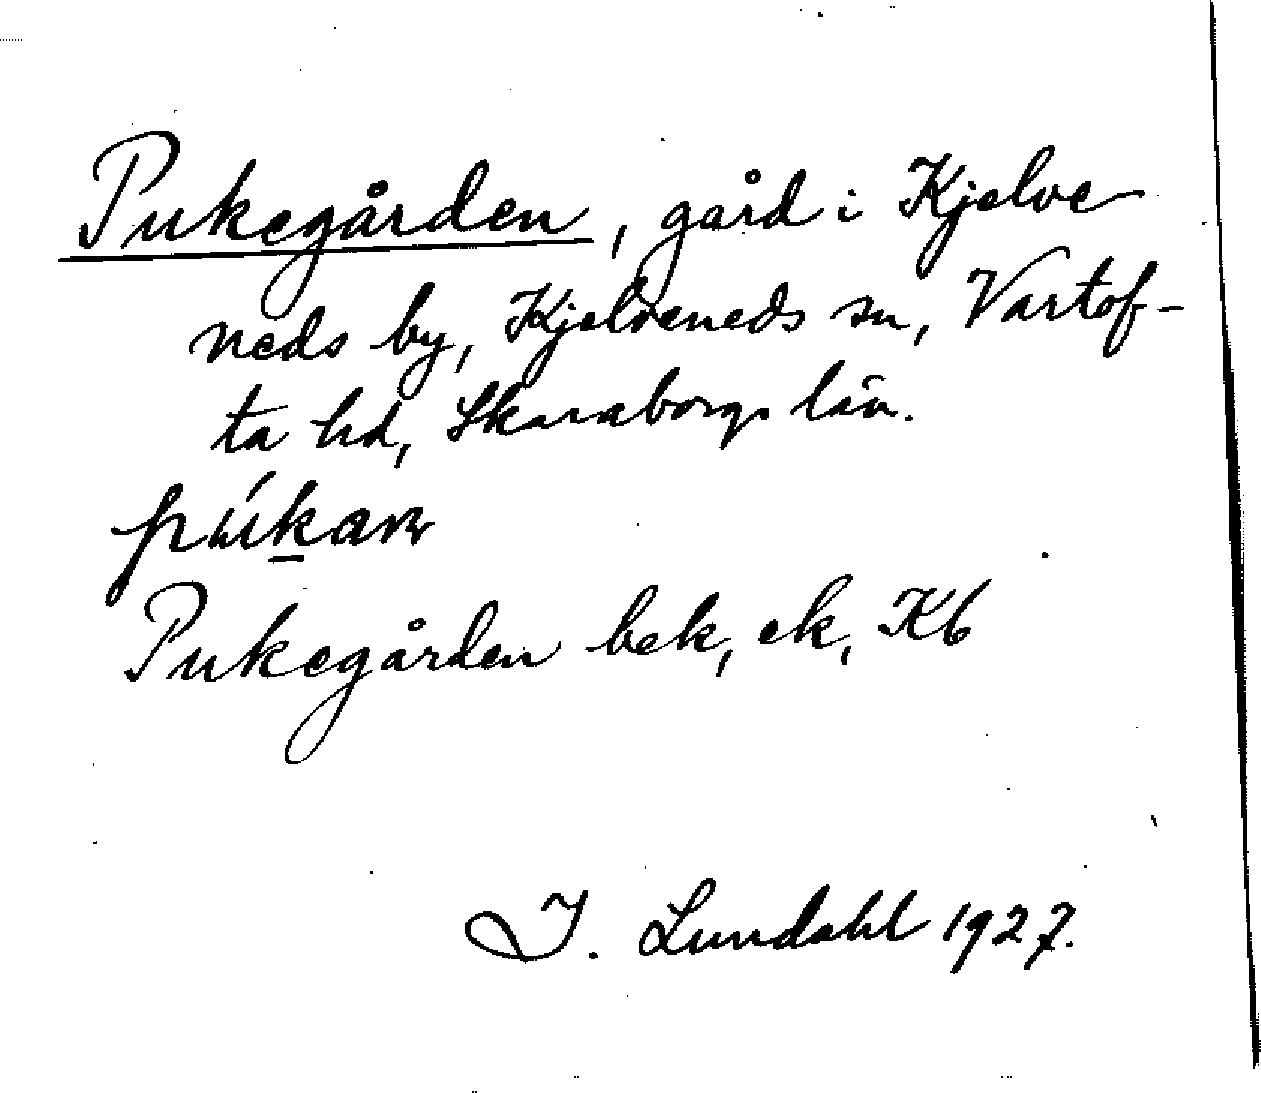 Pukegården, gård i Kjelve-
neds by, Kjelveneds sn, Vartof-
ta hd, Skaraborgs län.
púkan
Pukegården bek, ek, Kb
I. Lundahl 1927.